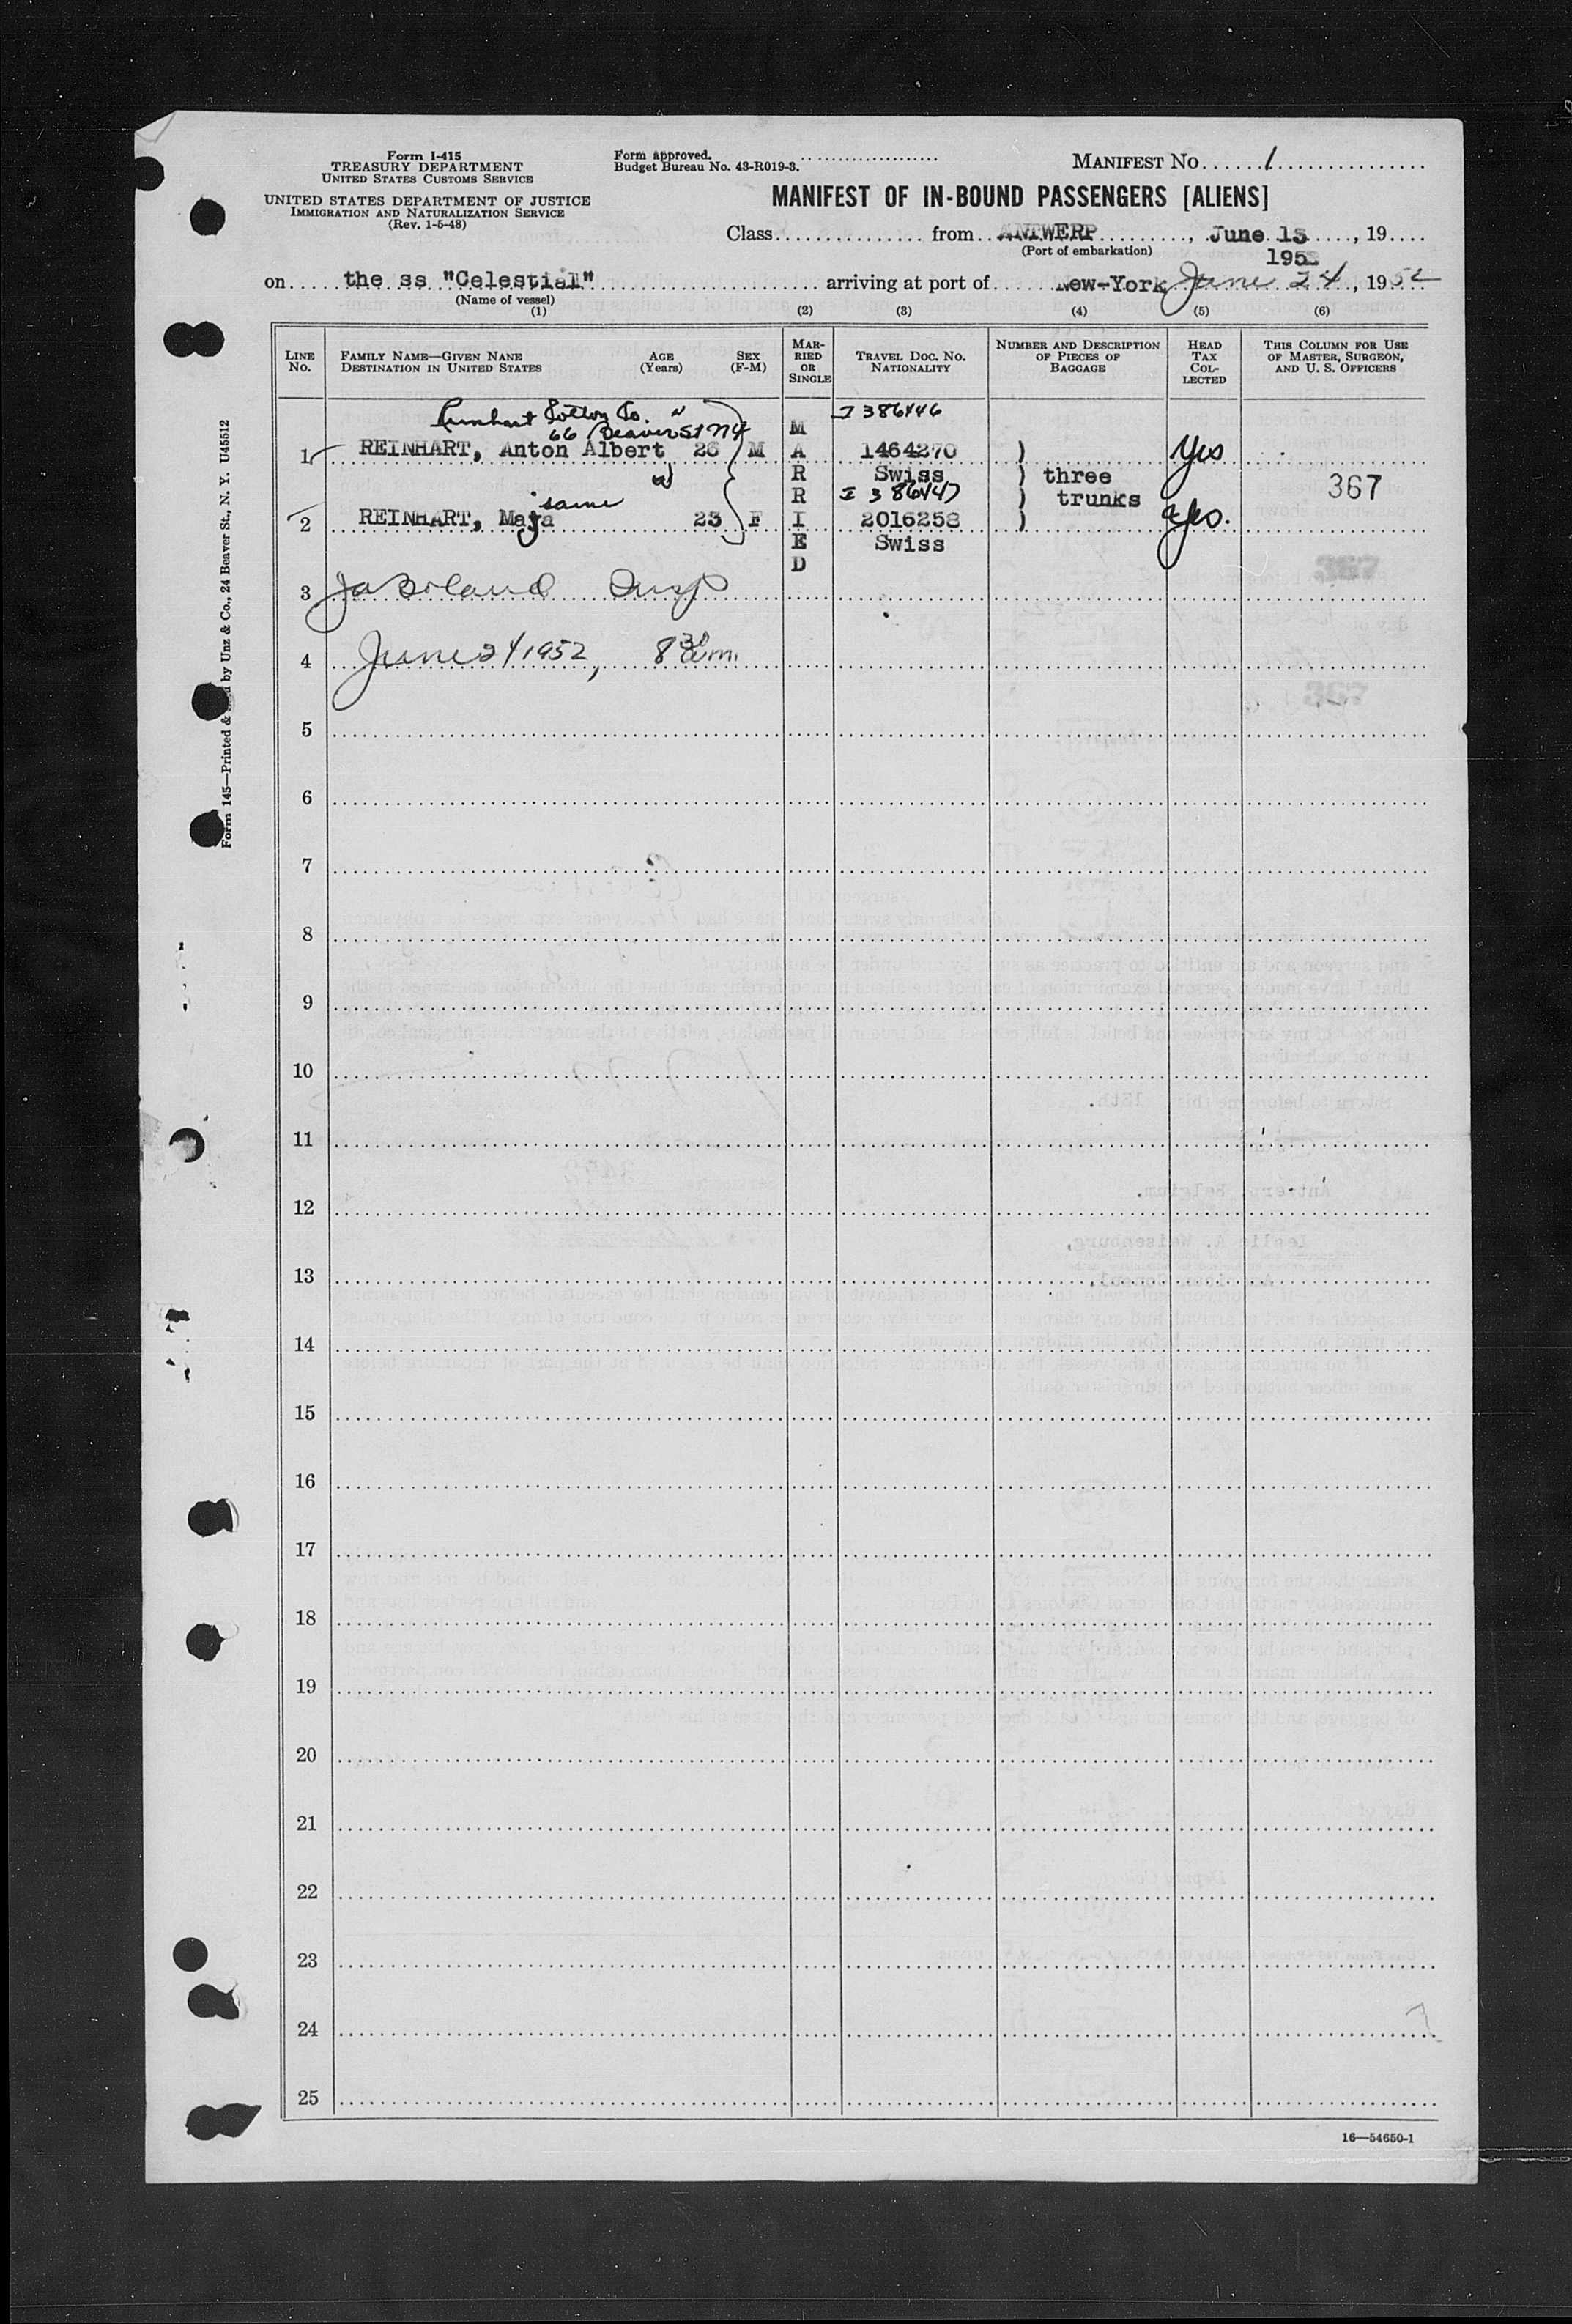 Form I-415
TREASURY DEPARTMENT
UNITED STATES CUSTOMS SERVICE
UNITED STATES DEPARTMENT OF JUSTICE
IMMIGRATION AND NATURALIZATION SERVICE
(Rev. 1-5-48)
Form approved.
Budget Bureau No. 43-R019-3.
MANIFEST NO. 1
MANIFEST OF IN-BOUND PASSENGERS [ALIENS]
Class from ANTWERP, June 13, 19
(Port of embarkation)
195
on the ss "Celestial" arriving at port of New-York June 24, 1952
(Name of vessel)
(1) (2) (3) (4) (5) (6)
LINE No.
FAMILY NAME—GIVEN NANE
DESTINATION IN UNITED STATES
AGE (Years)
SEX (F-M)
MARRIED OR SINGLE
TRAVEL DOC. NO. NATIONALITY
NUMBER AND DESCRIPTION OF PIECES OF BAGGAGE
HEAD TAX COLLECTED
THIS COLUMN FOR USE OF MASTER, SURGEON, AND U. S. OFFICERS
Reinhart Cotton Co.
66 Beaver St NY
I 386446
1 REINHART, Anton Albert 26 M 1464270 ) Yes
Swiss ) three
same I 386447 ) trunks 367
2 REINHART, Maja 23 F 2016258 ) Yes.
Swiss
MARRIED
3 Insp
367
4 June 24 1952, 8 30 am.
367
5
6
7
8
9
10
11
12
13
14
15
16
17
18
19
20
21
22
23
24
25
16—54650-1
Form 145—Printed & by Unz & Co., 24 Beaver St., N. Y. U45512